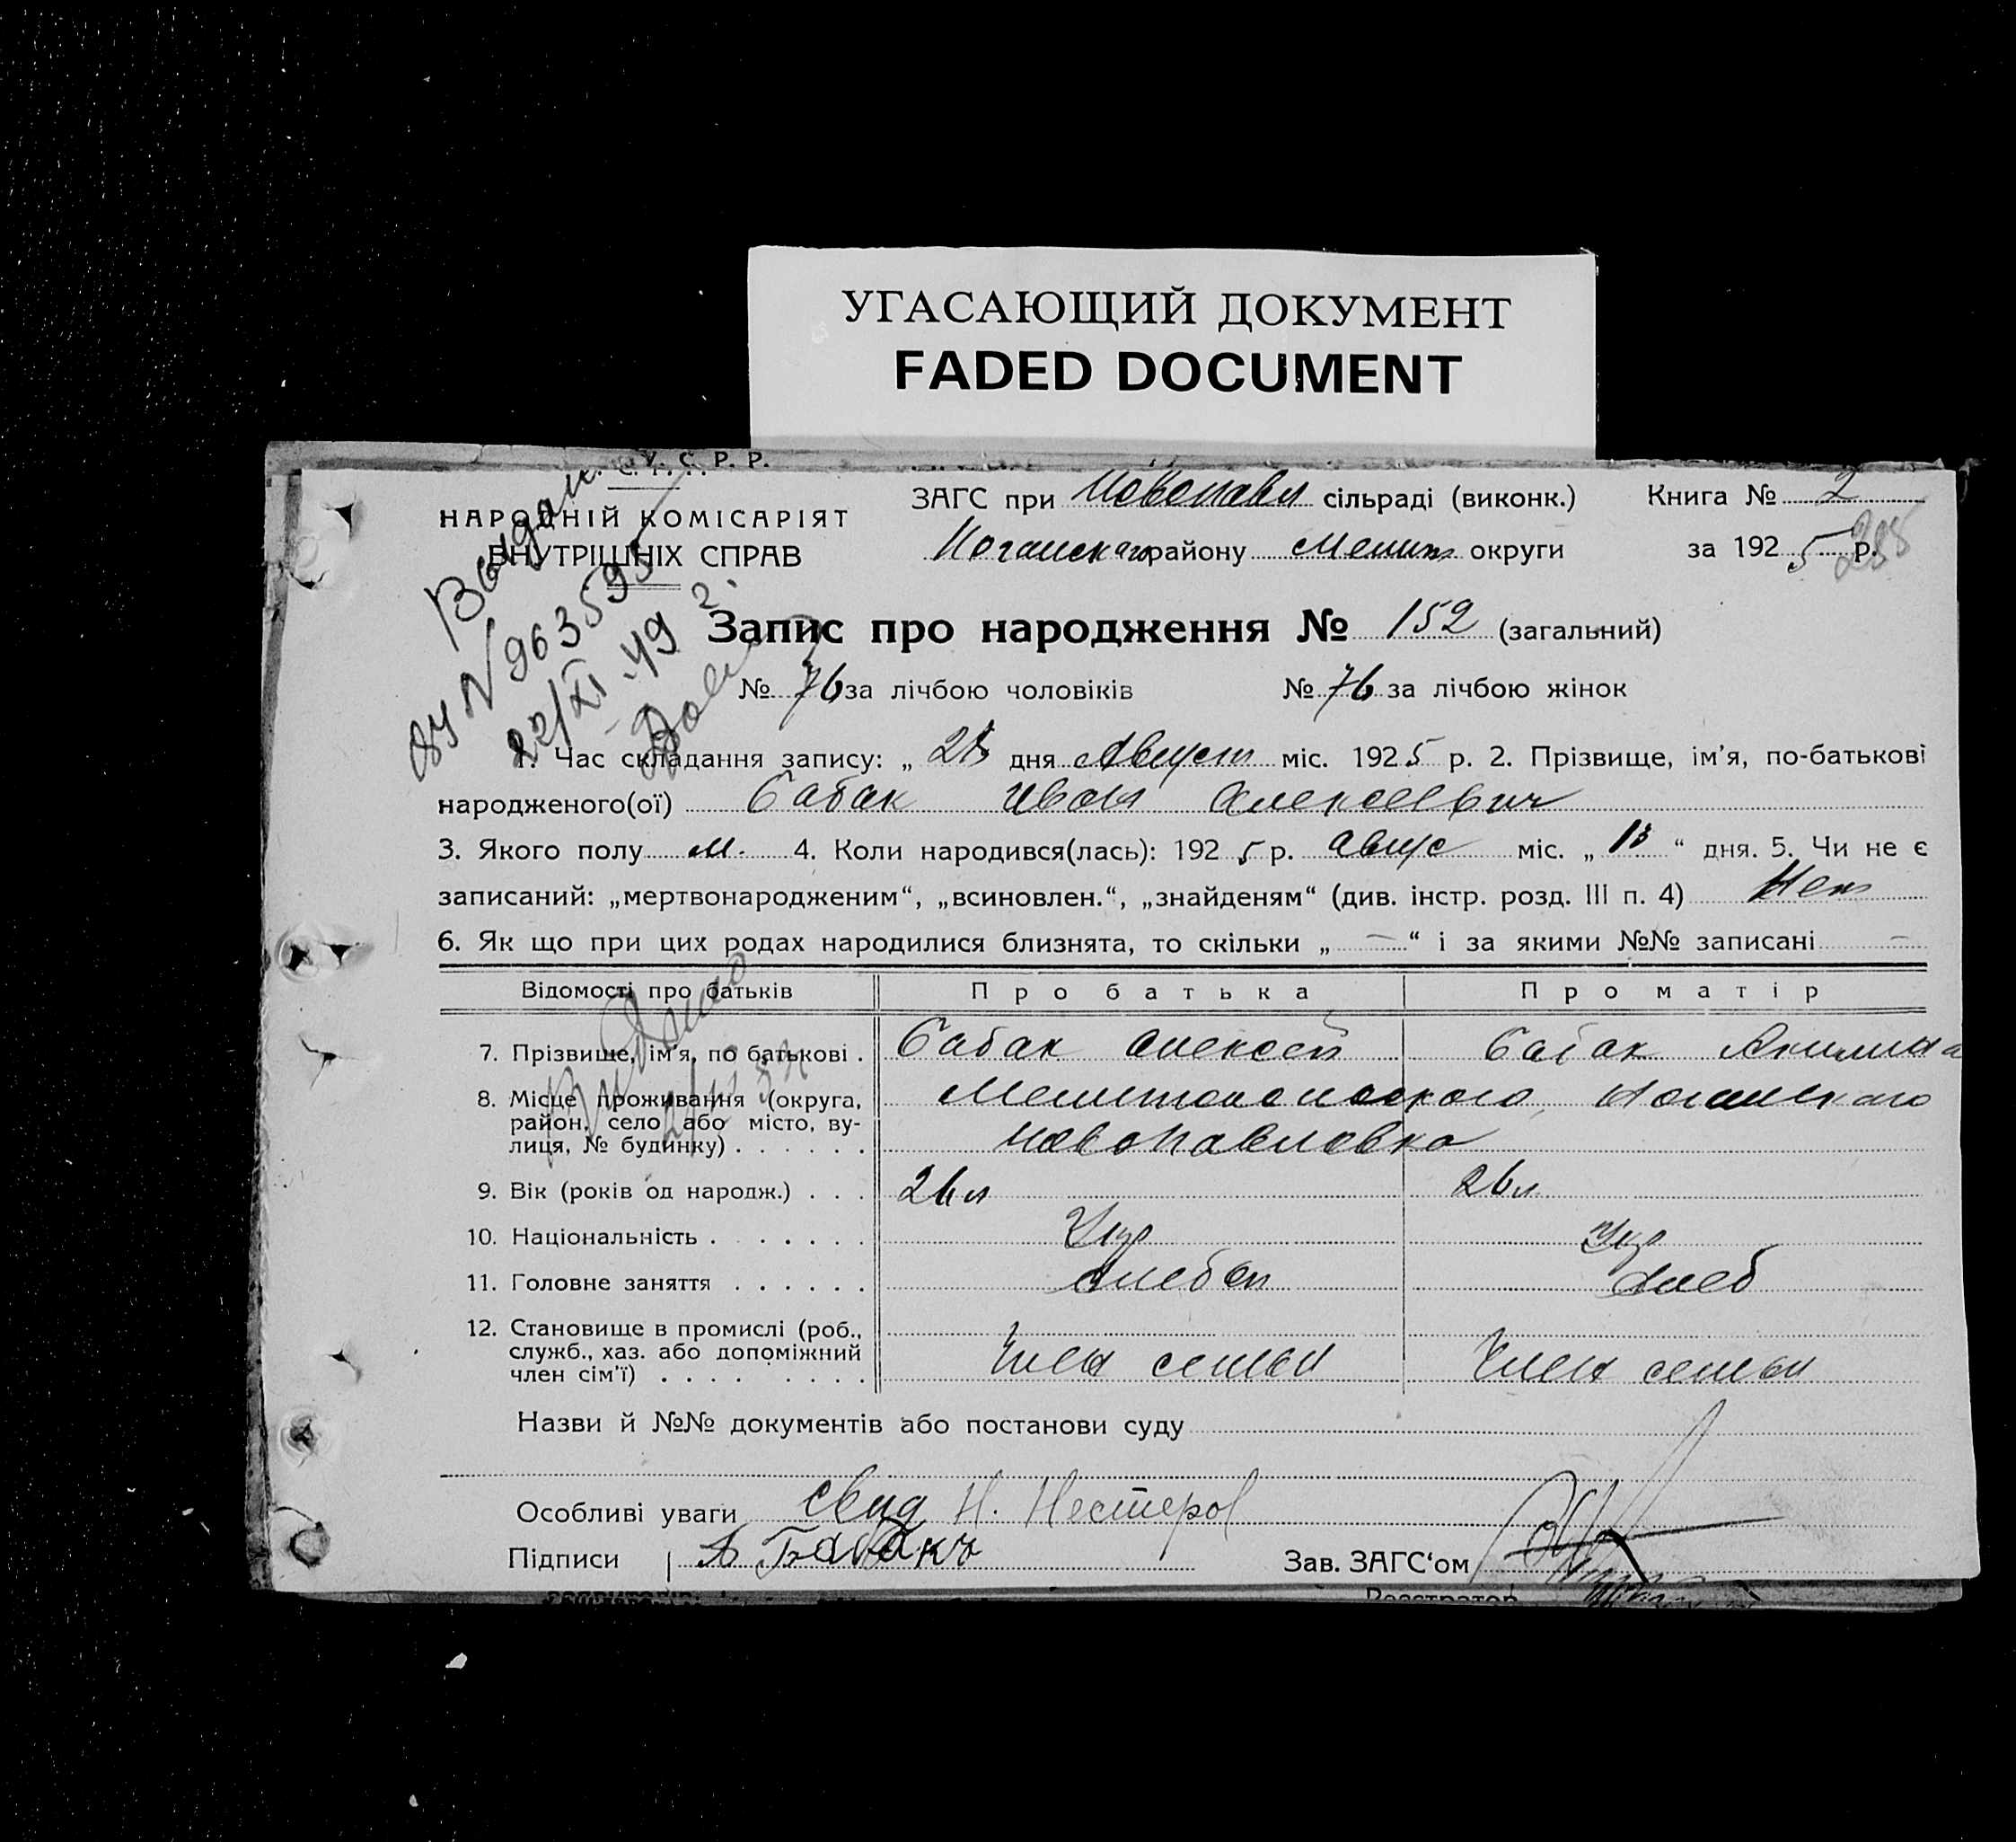 УГАСАЮЩИЙ ДОКУМЕНТ
FADED DOCUMENT
У. С. Р. Р.
НАРОДНІЙ КОМІСАРІЯТ
ВНУТРІШНІХ СПРАВ
ЗАГС при Новопавл сільраді (виконк.) Книга № 2
Ногайскаго району Мелит округи за 1925 р.
Выдан.
22/XI-49 г.
Запис про народження № 152 (загальний)
№ 76 за лічбою чоловіків № 76 за лічбою жінок
1. Час складання запису: „ дня Август міс. 1925 р. 2. Прізвище, ім’я, по-батькові
народженого(ої) Бабак Иван Алексеевич
3. Якого полу м. 4. Коли народився(лась): 1925 р. Авгус міс. „ “ дня. 5. Чи не є
записаний: „мертвонародженим“, „всиновлен.“, „знайденям“ (див. інстр. розд. III п. 4) Нет
6. Як що при цих родах народилися близнята, то скільки „ — “ і за якими №№ записані —
Відомості про батьків Про батька Про матір
7. Прізвище, ім’я, по батькові . Бабак Алексей Бабак Акилина
8. Місце проживання (округа, Мелитопольского, Ногайскаго
район, село або місто, ву-
лиця, № будинку) . . . . . . Новопавловка
9. Вік (років од народж.) . . . 26 л 26 л.
10. Національність . . . . . . Укр Укр
11. Головне заняття . . . . . . Хлеб
12. Становище в промислі (роб.,
служб., хаз. або допоміжний
член сім’ї) . . . . . . . . Член семьи Член семьи
Назви й №№ документів або постанови суду
Особливі уваги Свид Н. Нестеров
Підписи А Бабакъ Зав. ЗАГС‘ом
Реєстратор